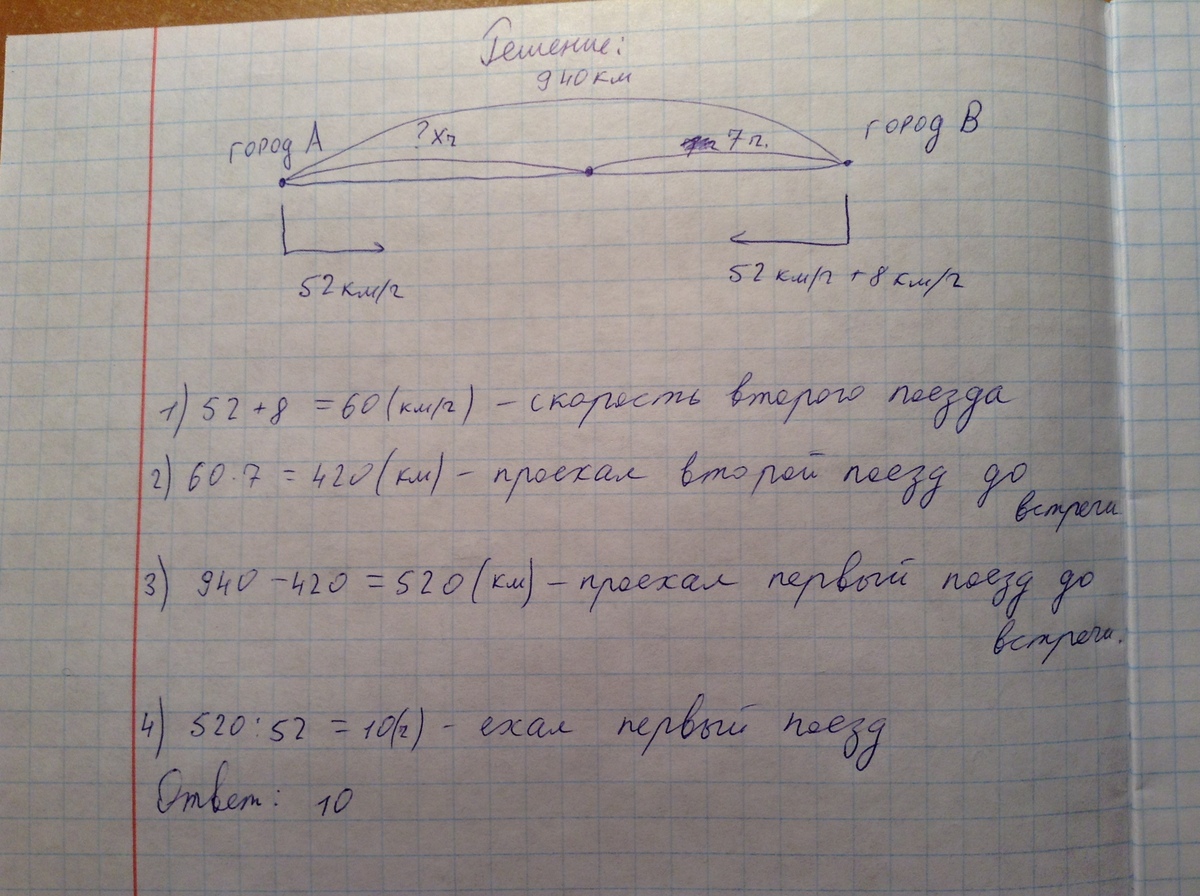 Решение:
940 км
город А
? х ч
7 ч.
город В
52 км/ч
52 км/ч + 8 км/ч
1) 52 + 8 = 60 (км/ч) – скорость второго поезда
2) 60 · 7 = 420 (км) – проехал второй поезд до
встречи
3) 940 – 420 = 520 (км) – проехал первый поезд до
встречи.
4) 520 : 52 = 10 (ч) – ехал первый поезд
Ответ: 10